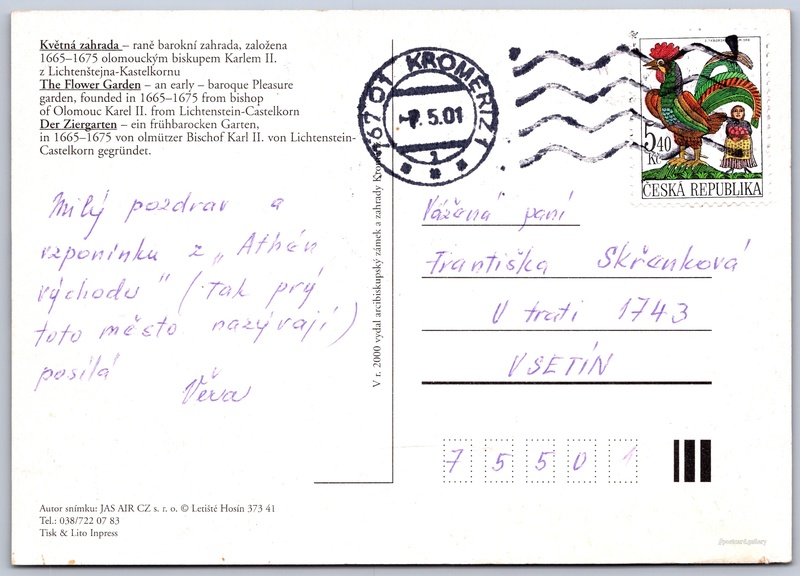 Květná zahrada – raně barokní zahrada, založena
1665–1675 olomouckým biskupem Karlem II.
z Lichtenštejna-Kastelkornu
The Flower Garden – an early – baroque Pleasure
garden, founded in 1665–1675 from bishop
of Olomouc Karel II. from Lichtenstein-Castelkorn
Der Ziergarten – ein frühbarocken Garten,
in 1665–1675 von olmützer Bischof Karl II. von Lichtenstein-
Castelkorn gegründet.
Milý pozdrav a
vzpomínku z „Athén
východu" (tak prý
toto město nazývají)
posílá
Věra
Autor snímku: JAS AIR CZ s. r. o. © Letiště Hosín 373 41
Tel.: 038/722 07 83
Tisk & Lito Inpress
V r. 2000 vydal arcibiskupský zámek a zahrady Kro
767 01 KROMĚŘÍŽ 1
-7.5.01
1
5,40
Kč
ČESKÁ REPUBLIKA
Vážená paní
Františka Skřenková
U trati 1743
VSETÍN
7 5 5 0 1